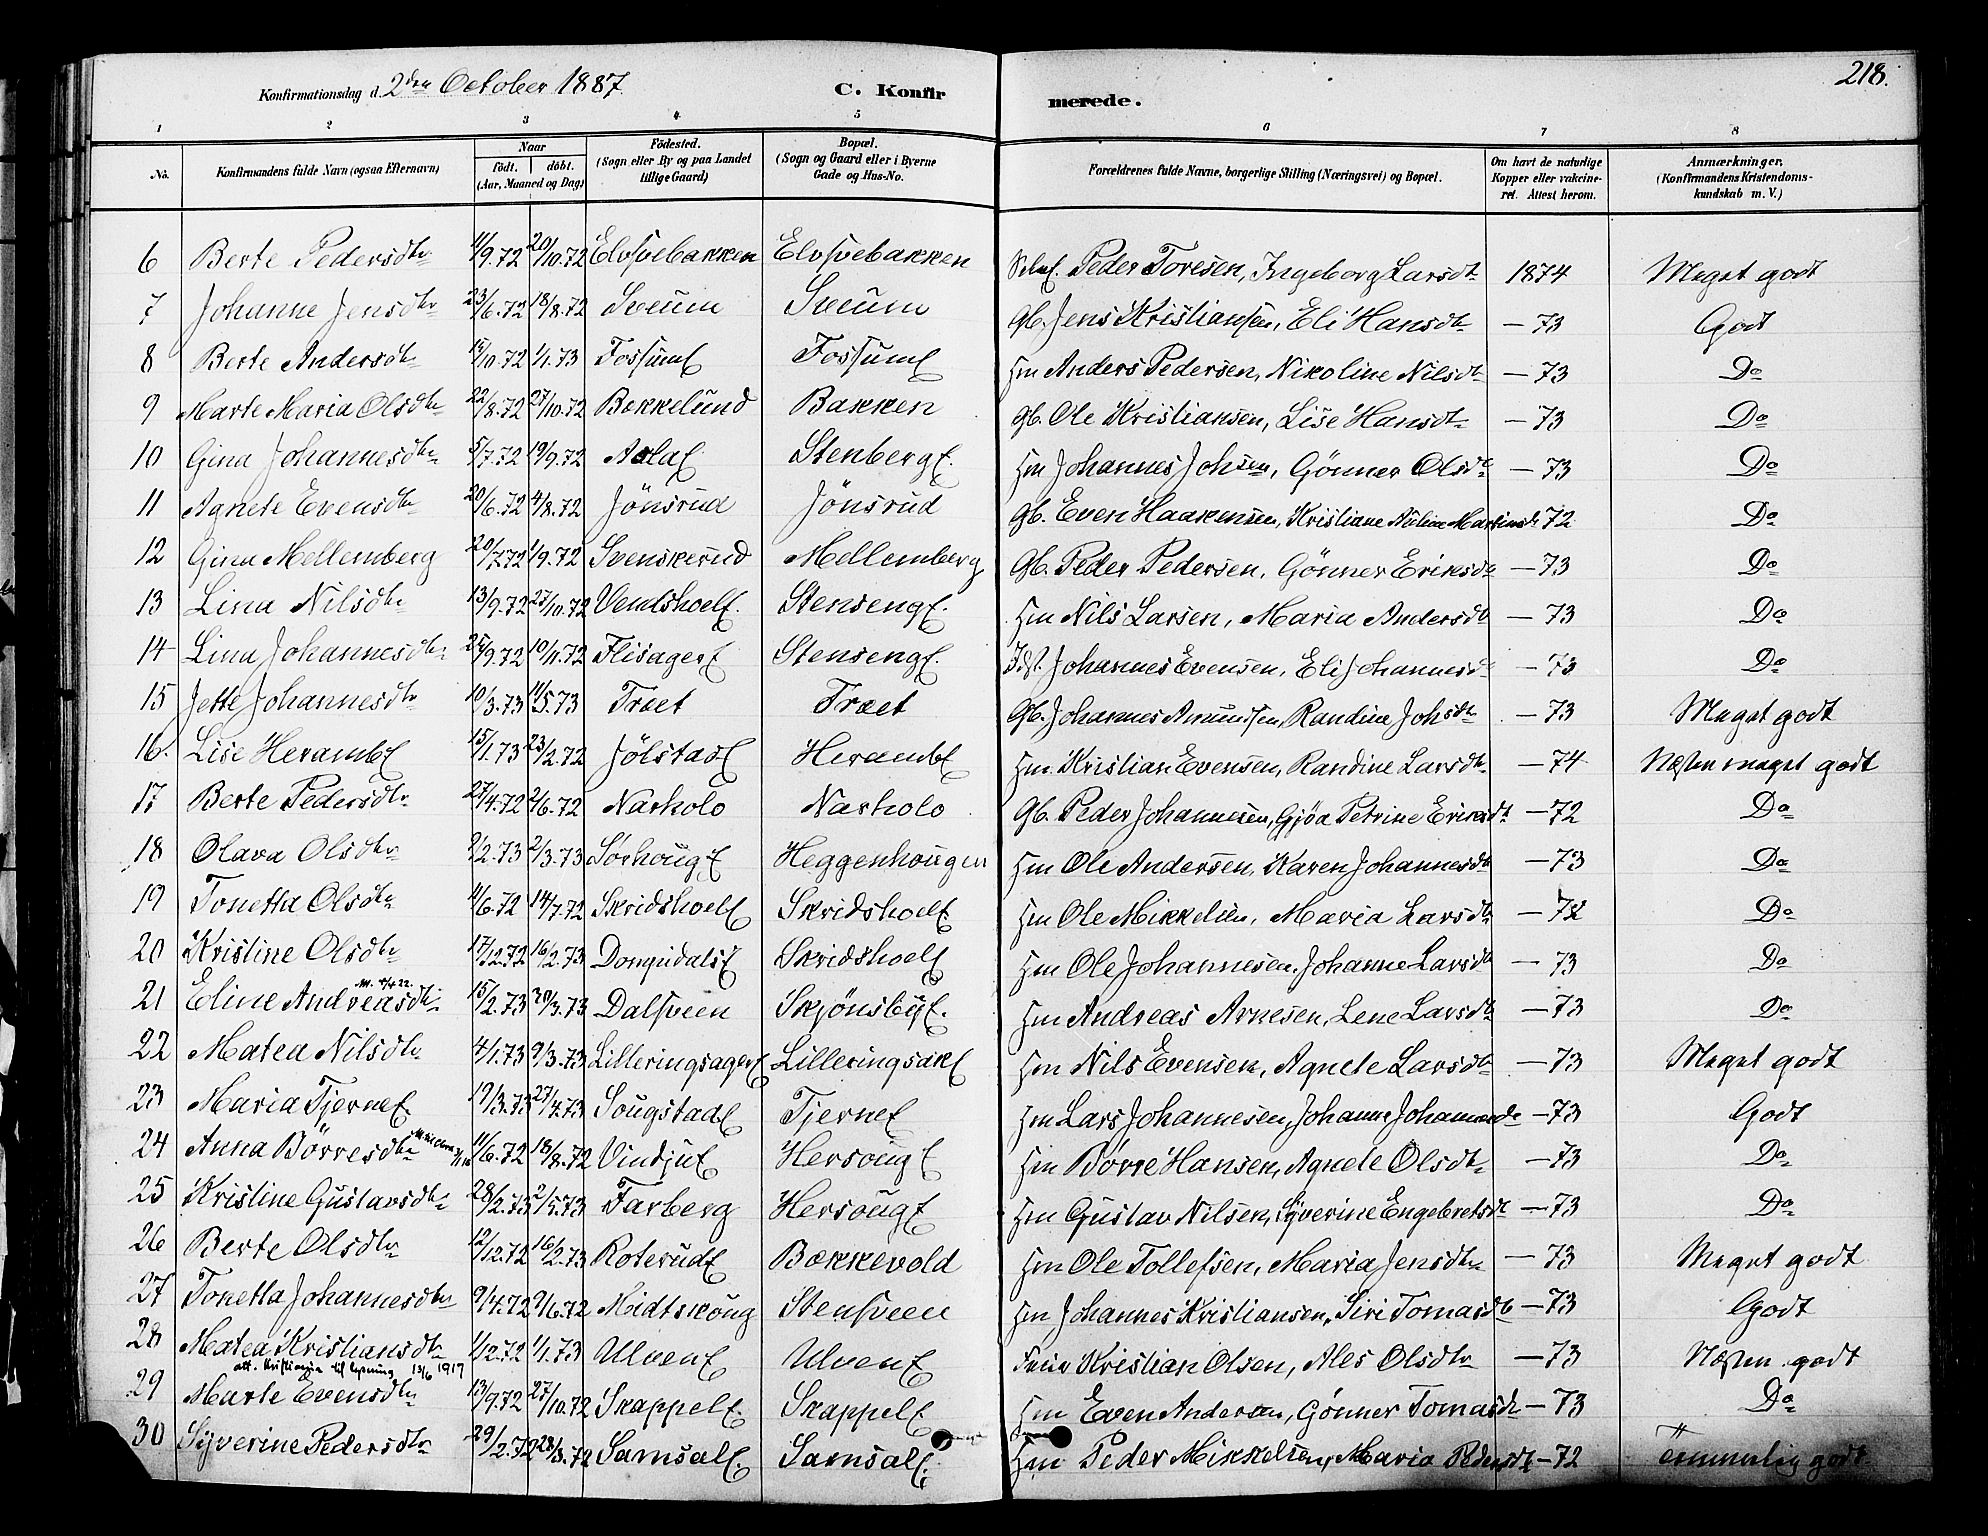 218.
Konfirmationsdag d. 2den October 1887. C. Konfirmerede.
1 2 3 4 5 6 7 8
No. Konfirmandens fulde Navn (ogsaa Efternavn) Naar födt. döbt. (Aar, Maaned og Dag) Födested. (Sogn eller By og paa Landet tillige Gaard) Bopæl. (Sogn og Gaard eller i Byerne Gade og Hus-No. Forældrenes fulde Navne, borgerlige Stilling (Næringsvei) og Bopæl. Om havt de naturlige Kopper eller vakcineret. Attest herom. Anmærkninger, (Konfirmandens Kristendomskundskab m. V.)
6 Berte Pedersdtr 11/9.72 20/10.72 Elvsvebakken Elvsvebakken Peder Toresen, Ingeborg Larsdtr 1874 Meget godt
7 Johanne Jensdtr 23/6.72 18/8.72 Sveum Sveum Gb. Jens Kristiansen, Eli Hansdtr — 73 Godt
8 Berte Andersdtr 15/10.72 1/1.73 Fossume Fossume Hm Anders Pedersen, Nikoline Nilsdtr — 73 Do
9 Marte Maria Olsdtr 22/8.72 27/10.72 Bekkelund Bakken Gb. Ole Kristiansen, Lise Hansdtr — 73 Do
10 Gina Johannesdtr 5/7.72 19/9.72 Stenberge. Hm Johannes Johsen, Gönner Olsdtr — 73 Do
11 Agnete Evensdtr 20/6.72 4/8.72 Jönsrud Jönsrud Gb. Even Haakensen, Kristiane 72 Do
12 Gina Mellemberg 20/7.72 1/9.72 Svenskerud Mellemberg Gb. Peder Pedersen, Gönner Eriksdtr — 73 Do
13 Lina Nilsdtr 13/9.72 27/10.72 Stensenge. Hm Nils Larsen, Maria Andersdtr — 73 Do
14 Lina Johannesdtr 25/9.72 10/11.72 Flisagere Stensenge. Johannes Evensen, Eli Johannesdtr — 73 Do
15 Jette Johannesdtr 10/3.73 11/5.73 Træet Træet Gb. Johannes Amundsen, Randine Johsdtr — 73 Meget godt
16. Lise Herambe 15/1.73 23/2.72 Jölstade Herambe Hm. Kristian Evensen, Randine Larsdtr — 74 Næsten meget godt
17 Berte Pedersdtr 27/4.72 2/6.72 Narkolo Narkolo Gb. Peder Johannesen, Gjöa Petrine Eriksdtr — 72 Do
18 Olava Olsdtr 2/2.73 2/3.73 Sörhouge Heggenhougen Hm Ole Andersen, Karen Johannesdtr — 73 Do
19 Tonetta Olsdtr 4/6.72 14/7.72 Skridshoele Skridshoele Hm Ole Mikkelsen, Maria Larsdtr — 72 Do
20 Kristine Olsdtr 17/12.72 16/2.73 Skridshoele Hm Ole Johannesen. Johanne Larsdtr — 73 Do
21 Eline Andreasdtr 15/2.73 30/3.73 Dalsveen Skjönsbye. Hm Andreas Arnesen, Lene Larsdtr — 73 Do
22 Matea Nilsdtr 4/1.73 9/3.73 Lilleringsagere Lilleringsake Hm Nils Evensen, Agnete Larsdtr — 73 Meget godt
23 Maria Tjerne 19/3.73 27/4.73 Sougstade Tjerne Hm Lars Johannesen, Johanne Johannesdtr — 73 Godt
24 Anna Börresdtr 11/6.72 18/8.72 Vindjue Hersouge Hm Börre Hansen, Agnete Olsdtr — 73 Do
25 Kristine Gustavsdtr 28/2.73 2/5.73 Farberg Hersouge Hm Gustav Nilsen, Syverine Engebretsdtr — 73 Do
26 Berte Olsdtr 12/12.72 16/2.73 Roterude Bækkevold Hm Ole Tollefsen, Maria Jensdtr — 73 Meget godt
27 Tonetta Johannesdtr 9/4.72 9/6.72 Midtskoug Stensveen Hm Johannes Kristiansen, Siri Tomasdtr — 73 Godt
28 Matea Kristiansdtr 1/12.72 1/1.73 Ulvene Ulvene Kristian Olsen, Ales Olsdtr — 73 Næsten godt
att. Kristiania til lysning 13/6 1917
29 Marte Evensdtr 13/9.72 27/10.72 Skappele. Skappele Hm Even Andersen, Gönner Tomasdtr — 73 Do
30 Syverine Pedersdtr 29/2.72 28/3.72 Samsale. Samsale. Hm Peder Mikkelsen, Maria Pedersdtr — 72 Temmelig godt.